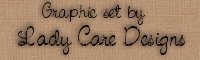 Graphic set by
Lady Care Designs